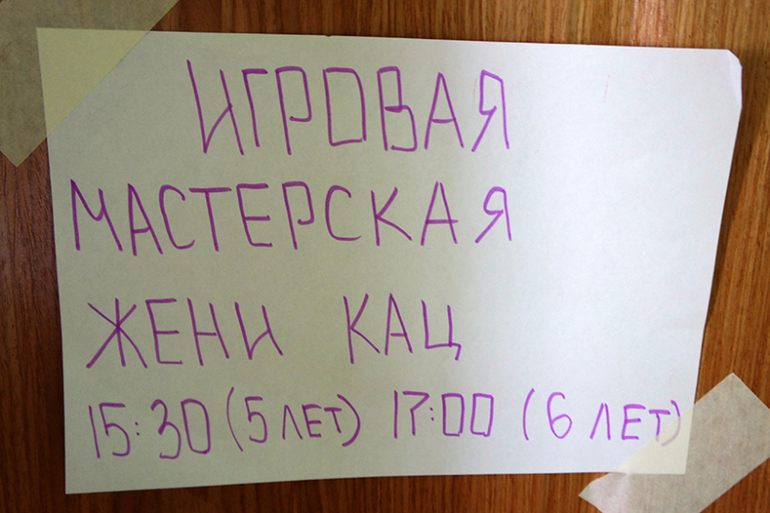 ИГРОВАЯ
МАСТЕРСКАЯ
ЖЕНИ КАЦ
15:30 (5 ЛЕТ) 17:00 (6 ЛЕТ)